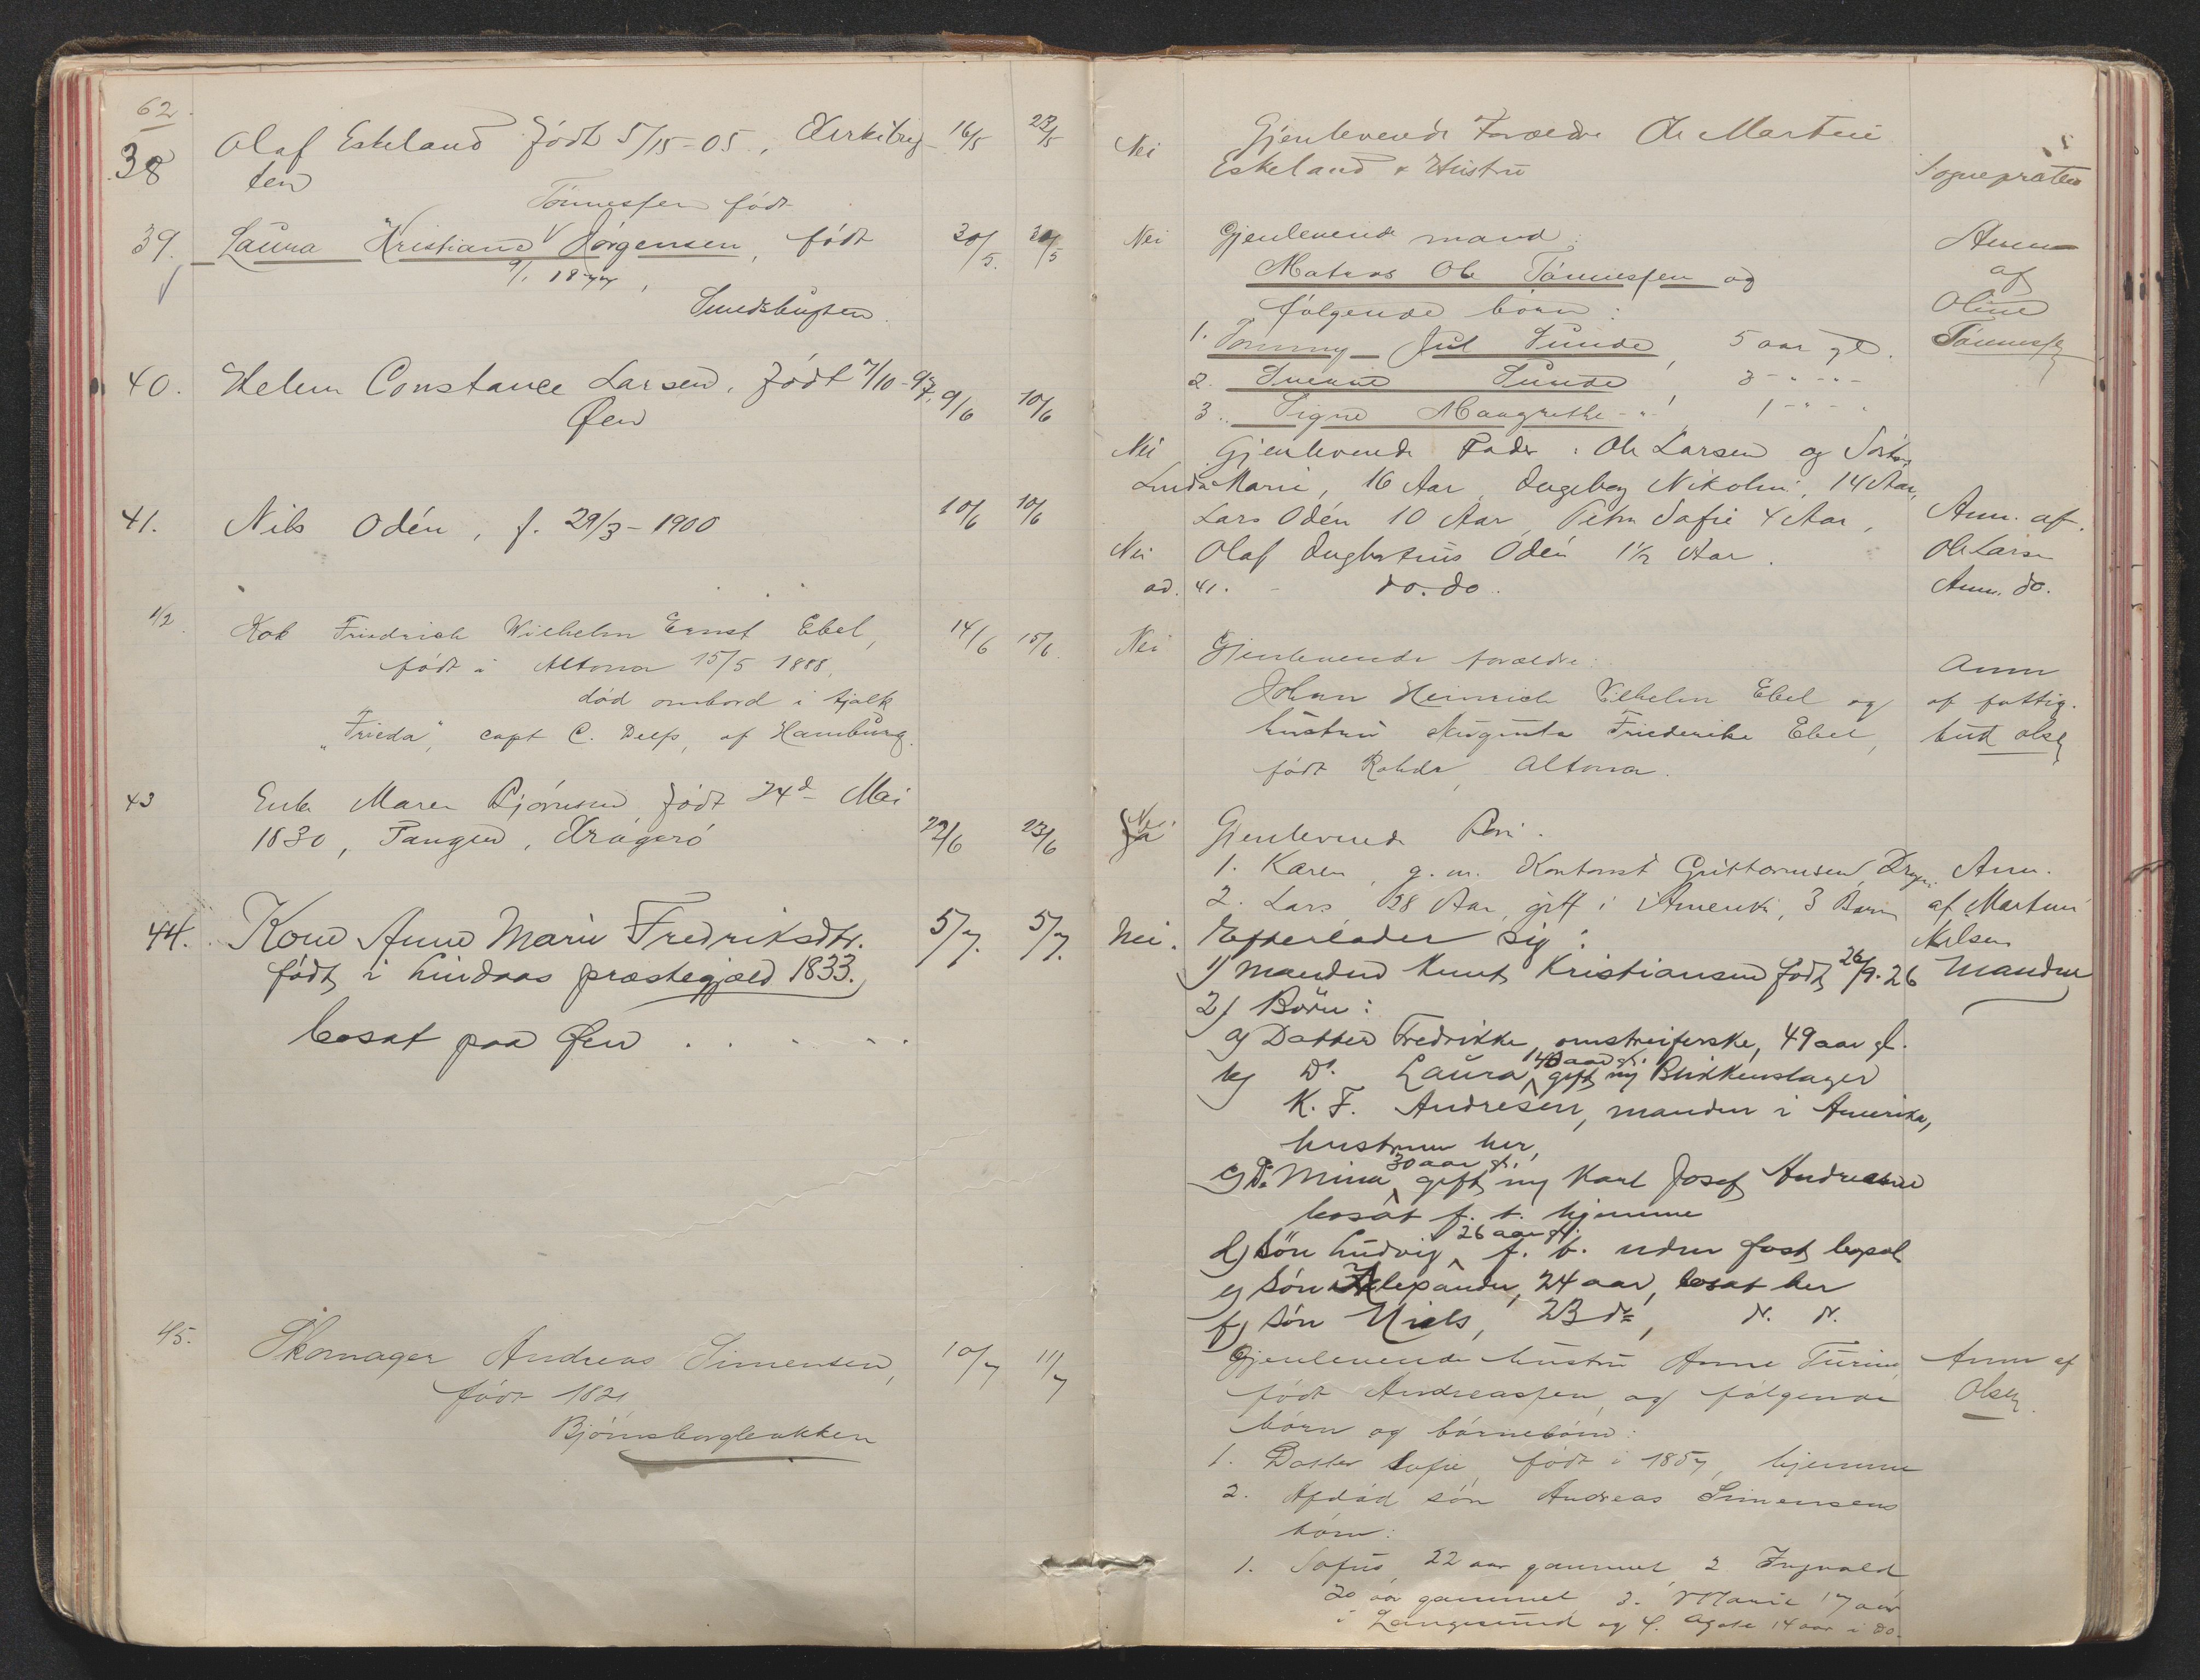 62
38 Olaf Eskeland født 5/15-05, Kirkebug- 16/5 23/5
ten
Tönnessen født
39. Laura Kristiane Jørgensen, født 30/5. 30/5
9/1 1877,
Smedsbugten.
40. Helen Constance Larsen, født 7/10-97, 9/6 10/6
Øen
41. Nils Odén, f. 29/3-1900 10/6 10/6
1/2. Kok Friedrich Wilhelm Ernst Ebel, 14/6 15/6.
født i Altona 15/5 1888,
død ombord i tjalk
"Frieda", capt C. Delfs, af Hamburg.
43 Enke Maren Bjørnsen født 24d Mai
1830, Tangen, Kragerö 22/6 23/6
44. Kone Anne Marie Fredriksdtr. 5/7. 5/7.
født i Lindaas præstegjæld 1833.
bosat paa Øen . . . .
45. Skomager Andreas Simensen, 10/7 11/7
født 1821,
Bjørnsborgbakken
Nei Gjenlevende Forældre Ole Martin
Eskeland & Hustru Sognepræsten
Nei Gjenlevende mand: Anm
Matros Ole Tönnessen og af
følgende børn: Oline
1. Jul Sunde, 5 aar gl. Tönnessen
2. Sunde 3 - " - " -
3. Signe Maagrethe - " - 1 - " - "
Nei Gjenlevende Fader: Ole Larsen og
Marie, 16 Aar, Ingeborg Nikoline, 14 Aar,
Lars Odén 10 Aar, Petra Sofie 4 Aar, Anm. af.
Nei Olaf Odén 1½ Aar. Ole Larsen
ad. 41. - do. do. Anm. do.
Nei Gjenlevende forældre: Anm
Johan Heinrich Vilhelm Ebel og af fattig-
hustru Augusta Friederike Ebel, bud Olsen
født Rohde, Altona.
Nei Ja Gjenlevende Børn.
1. Karen, g. m. Kontorist Guttormsen, Anm.
2. Lars, 38 Aar, gift i Amerika, 3 Børn af Martin
Nei. Efterlader sig: Nilsen
1) Manden Knut Kristiansen født 26/9.26 Manden
2) Börn:
a) Datter Fredrikke, omstreiferske, 49 aar gl.
b) Do. Laura, 40 aar gl. gift m/ Blikkenslager
K. F. Andresen, manden i Amerika,
hustruen her,
c) Do. Mina, 30 aar gl. gift m/ Karl Josef Andreasen
bosat f. t. hjemme
d) Sön Ludvig, 26 aar gl. f. t. uden fast bopæl
e) Sön Alexander, 24 aar, bosat her
f) Sön Niels, 23 do, do. do.
Gjenlevende hustru Anne Turine, Anm af
født Andreassen, og følgende Olsen.
børn og børnebørn:
1. Datter Sofie, født i 1857, hjemme
2. Afdød søn Andreas Simensens
børn:
1. Sofus, 22 aar gammel 2 Ingvald
20 aar gammel 3. Marie 17 aar
i Langesund og 4. Agate 14 aar i do.